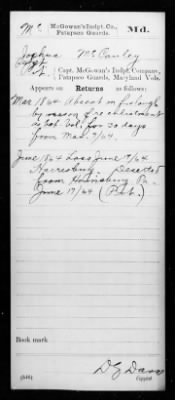 Mc McGowan's Indpt. Co., Md.
Patapsco Guards.
Joshua McCauley
Pvt., Capt. McGowan's Indpt. Company,
Patapsco Guards, Maryland Vols.
Appears on Returns as follows:
Mar 1864 Absent on furlough
by reason of re enlistment
as Vet. Vol. for 30 days
from Mar. 7/64.
June 1864 Loss June 7/64
Harrisburg. Deserted
from Harrisburg Pa.
June 17/64 (Pvt.)
Book mark
(546) Copyist.